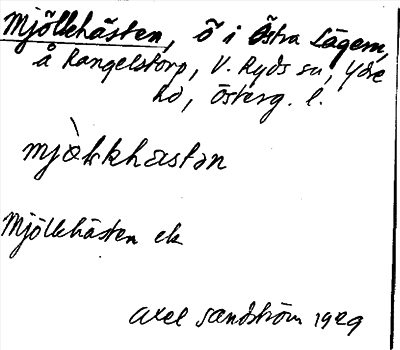 Mjölkhästen, ö i Östra Lägern,
å Rangelstorp, V. Ryds sn, Ydre
hd, Österg. l.
mjòlkhastən
Mjölkhästen ek
Axel Sandström 1929